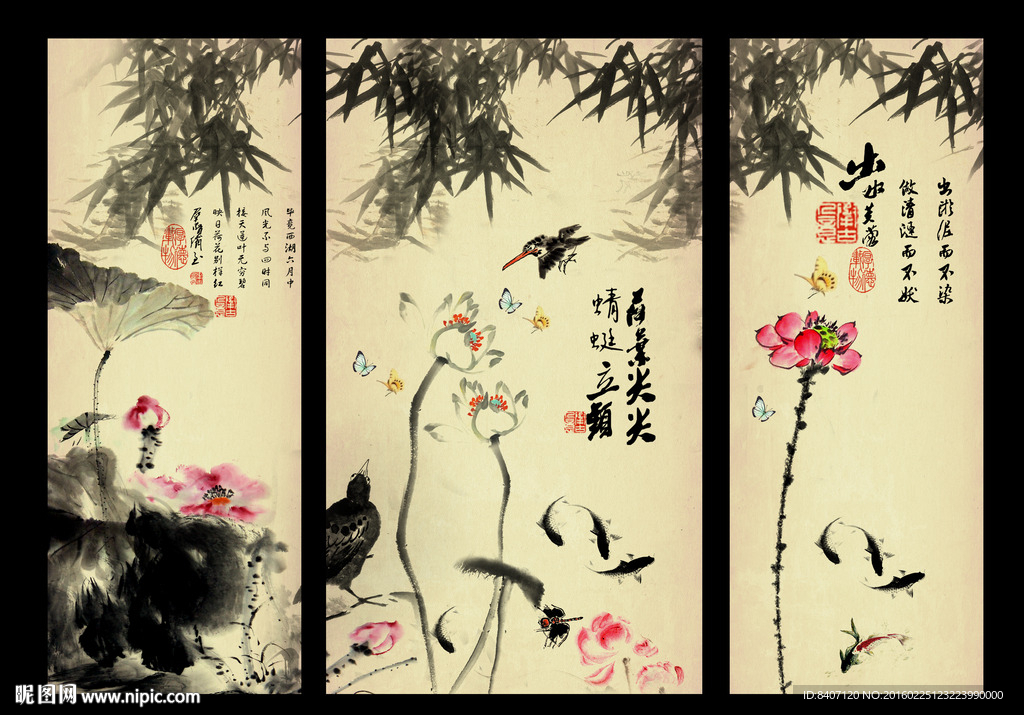 毕竟西湖六月中
风光不与四时同
接天莲叶无穷碧
映日荷花别样红
荷叶尖尖
蜻蜓立頭
出水芙蓉
出淤泥而不染
做清涟而不妖
昵图网 www.nipic.com
ID:8407120 NO:20160225123223990000